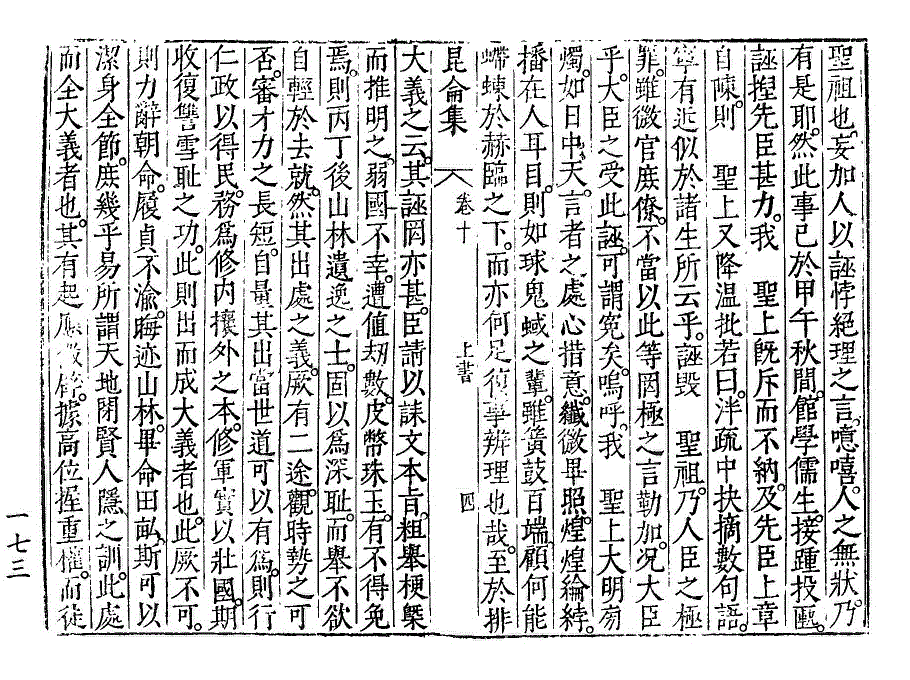 聖祖也。妄加人以誣悖絕理之言。噫嘻。人之無狀。乃
有是耶。然此事已於甲午秋間。館學儒生。接踵投匭。
誣揑先臣甚力。我 聖上旣斥而不納。及先臣上章
自陳。則 聖上又降温批若曰。泮疏中抉摘數句語。
寧有近似於諸生所云乎。誣毁 聖祖。乃人臣之極
罪。雖微官庶僚。不當以此等罔極之言勒加。况大臣
乎。大臣之受此誣。可謂寃矣。嗚呼。我 聖上大明旁
燭。如日中天。言者之處心措意。纖微畢照。煌煌綸綍。
播在人耳目。則如球鬼蜮之輩。雖簧鼓百端。顧何能
螮蝀於赫臨之下。而亦何足復事辨理也哉。至於排
昆侖集 卷十 上書 四
大義之云。其誣罔亦甚。臣請以誄文本旨。粗舉梗槩
而推明之。弱國不幸。遭值刧數。皮幣珠玉。有不得免
焉。則丙丁後山林遺逸之士。固以爲深耻。而舉不欲
自輕於去就。然其出處之義。厥有二途。觀時勢之可
否。審才力之長短。自量其出當世道可以有爲。則行
仁政以得民。務爲修内攘外之本。修軍實以壯國。期
收復讐雪耻之功。此則出而成大義者也。此厥不可。
則力辭朝命。履貞不渝。晦迹山林。畢命田畝。斯可以
潔身全節。庶幾乎易所謂天地閉賢人隱之訓。此處
而全大義者也。其有起應徵辟。據高位握重權。而徒
一七三